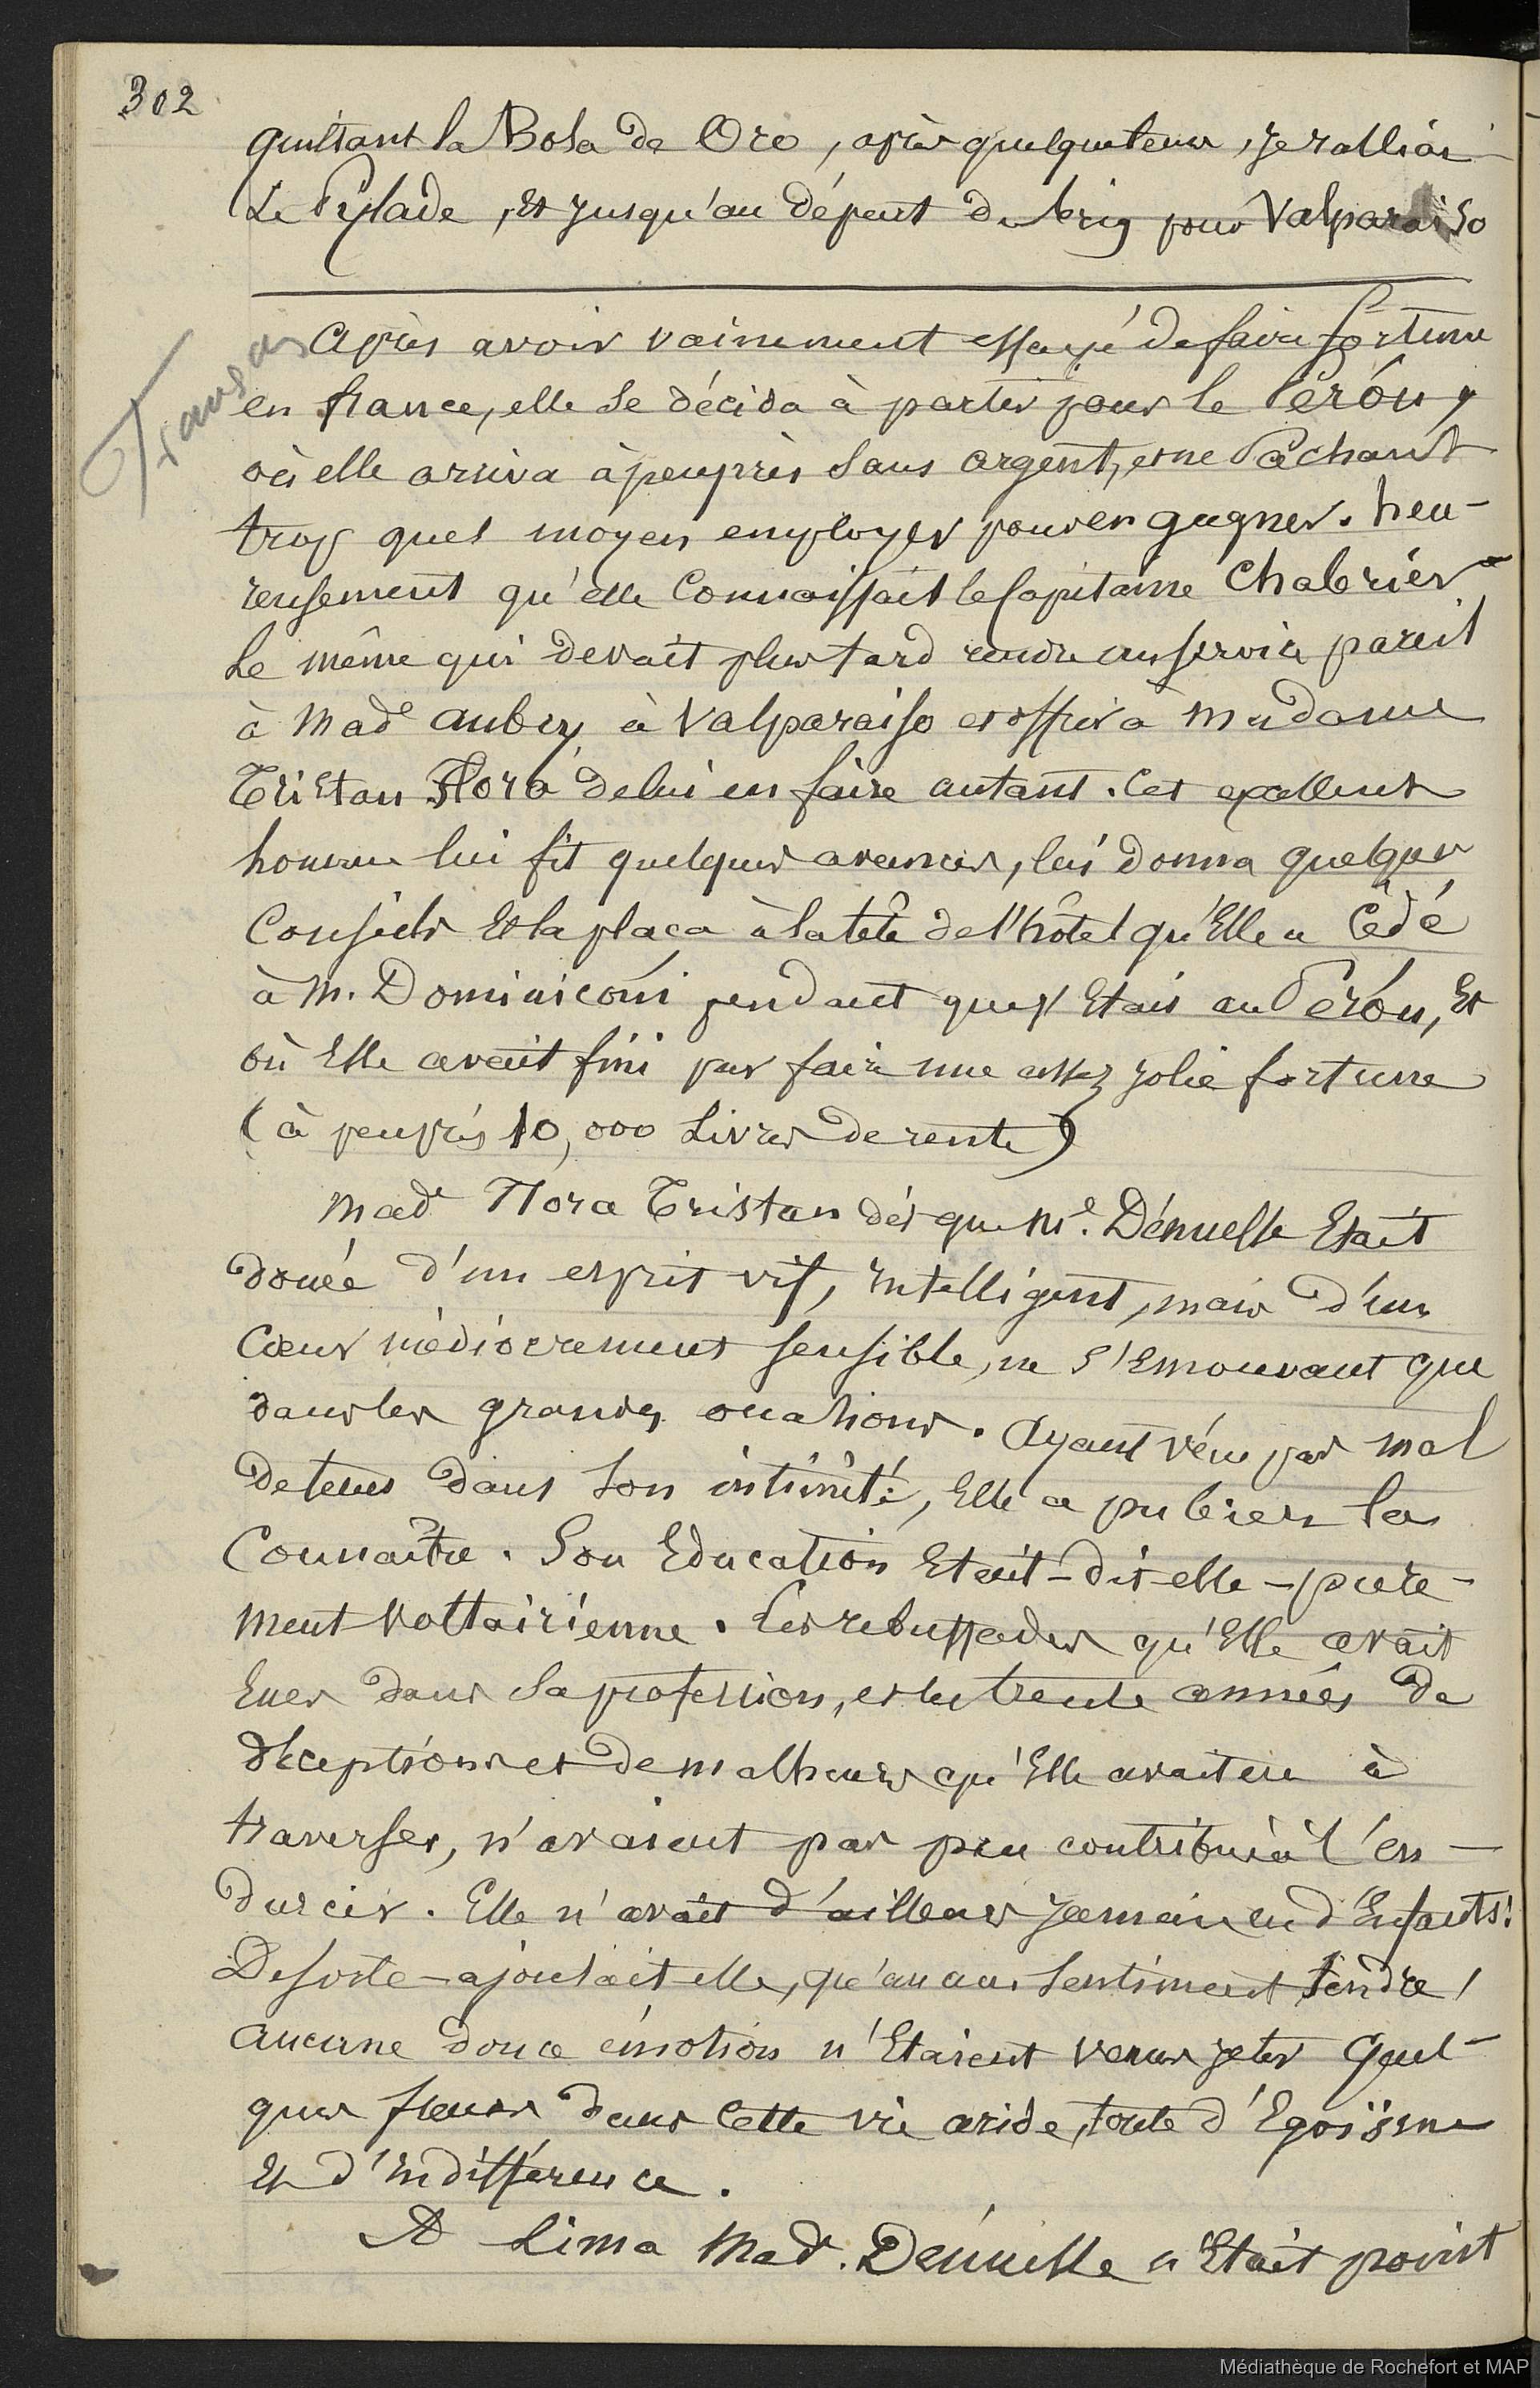 302
quittant la Bola de Oro, après quelquetems, je ralliai
Le Pylade, et jusqu'au départ du brig pour Valparaiso
Après avoir vainement essayé de faire fortune
en france, elle se décida à partir pour le Pérou,
où elle arriva àpeuprès sans argent, et ne sachant
trop quel moyen employer pour en gagner. heu-
reusement qu'elle Connaissait le Capitaine Chabrier
Le même qui devait plus tard rendre un service pareil
à Made Aubry à Valparaiso et offrir à Madame
Tristan Flora de lui en faire autant. Cet excellent
homme lui fit quelques avances, lui donna quelques
Conseils et la plaça à la tête de l'hôtel qu'Elle a Cédé
à M. Dominiconi pendant que j'Etais au Pérou, et
où Elle avait fini par faire une assez jolie fortune
(à peuprès 10,000 Livres de rente)
Made Flora Tristan dès que Me. Dénuelle Etait
douée d'un esprit vif, intelligent, mais d'un
Cœur médiocrement sensible, ne s'Emouvant que
dans les grandes ovations. Ayant vécu pas mal
de tems dans son intimité, Elle a pu bien la
Connaître. Son Education Etait-dit-elle-pure-
ment voltairienne. Les rebuffades qu'Elle avait
Eues dans sa profession, et les trente années de
déceptions et de malheurs qu'Elle avait eu à
traverser, n'avaient pas peu contribué à l'en-
durcir. Elle n'avait d'ailleurs jamais eu d'Enfants!
De sorte-ajoutait elle, qu'aucun sentiment tendre,
aucune douce émotion n'Etaient venus jeter quel-
ques fleurs dans Cette vie aride, toute d'Egoïsme
et d'indifférence.
A Lima Made. Dénuelle n'Etait point
Médiathèque de Rochefort et MAP